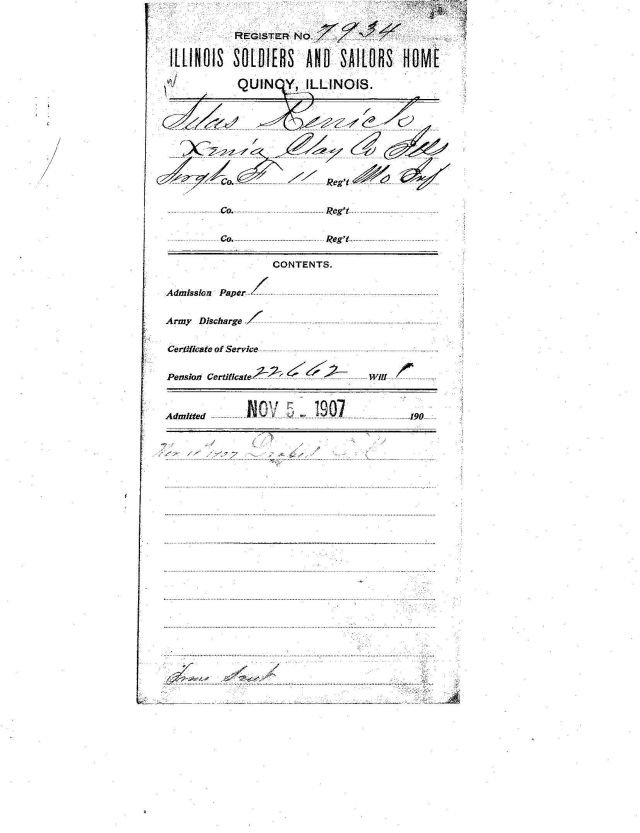 REGISTER No. 7934
ILLINOIS SOLDIERS AND SAILORS HOME
QUINCY, ILLINOIS.
Silas Renick
Xenia Clay Co Ills
Sergt Co. F 11 Reg't Mo Inf
Co. Reg't
Co. Reg't
CONTENTS.
Admission Paper 1
Army Discharge 1
Certificate of Service
Pension Certificate 22,662 Will 1
Admitted NOV 5 - 1907 190
1907